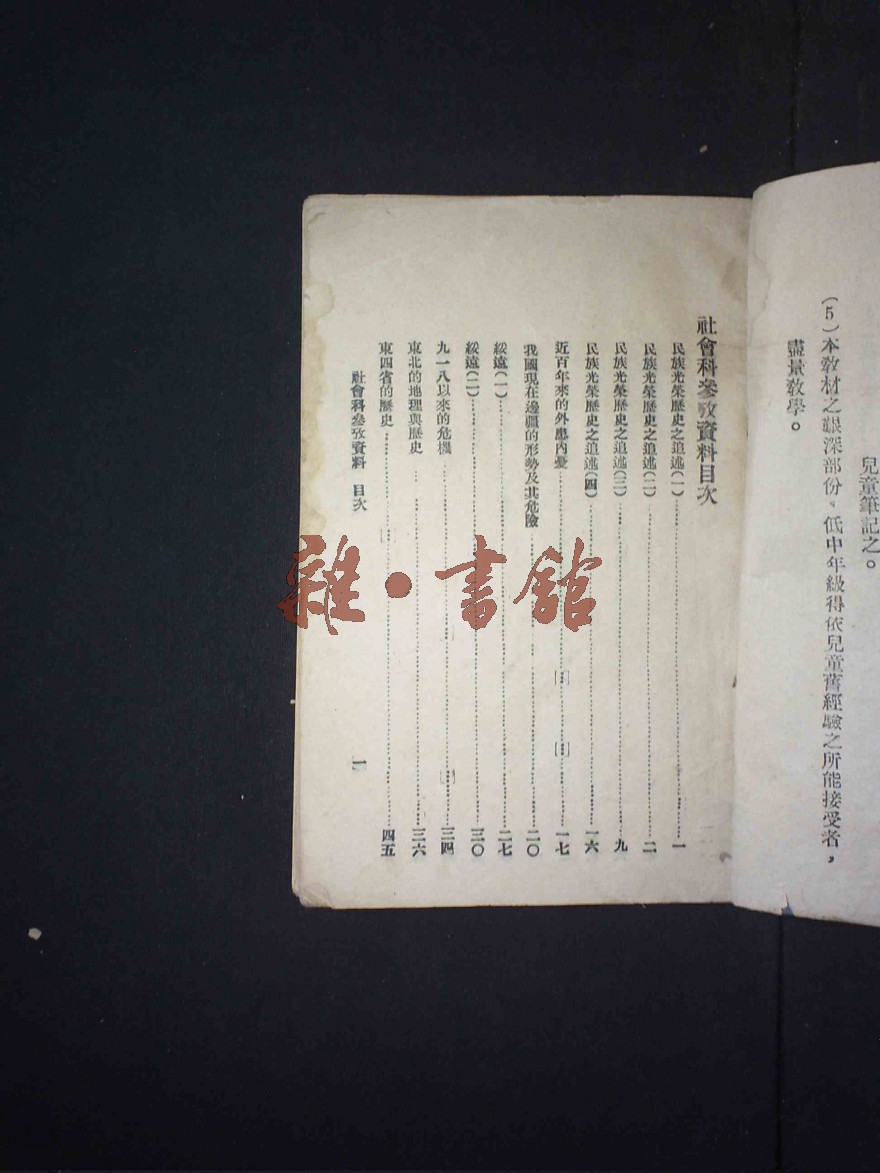 兒童筆記之。
(5)本教材之艱深部份,低中年級得依兒童舊經驗之所能接受者,
盡量教學。
社會科參攷資料目次
民族光榮歷史之追述(一)……一
民族光榮歷史之追述(二)……二
民族光榮歷史之追述(三)……九
民族光榮歷史之追述(四)……一六
近百年來的外患內憂……一七
我國現在邊疆的形勢及其危險……二〇
綏遠(一)……二七
綏遠(二)……三〇
九一八以來的危機……三四
東北的地理與歷史……三六
東四省的歷史……四五
社會科參攷資料 目次
一
雜·書館